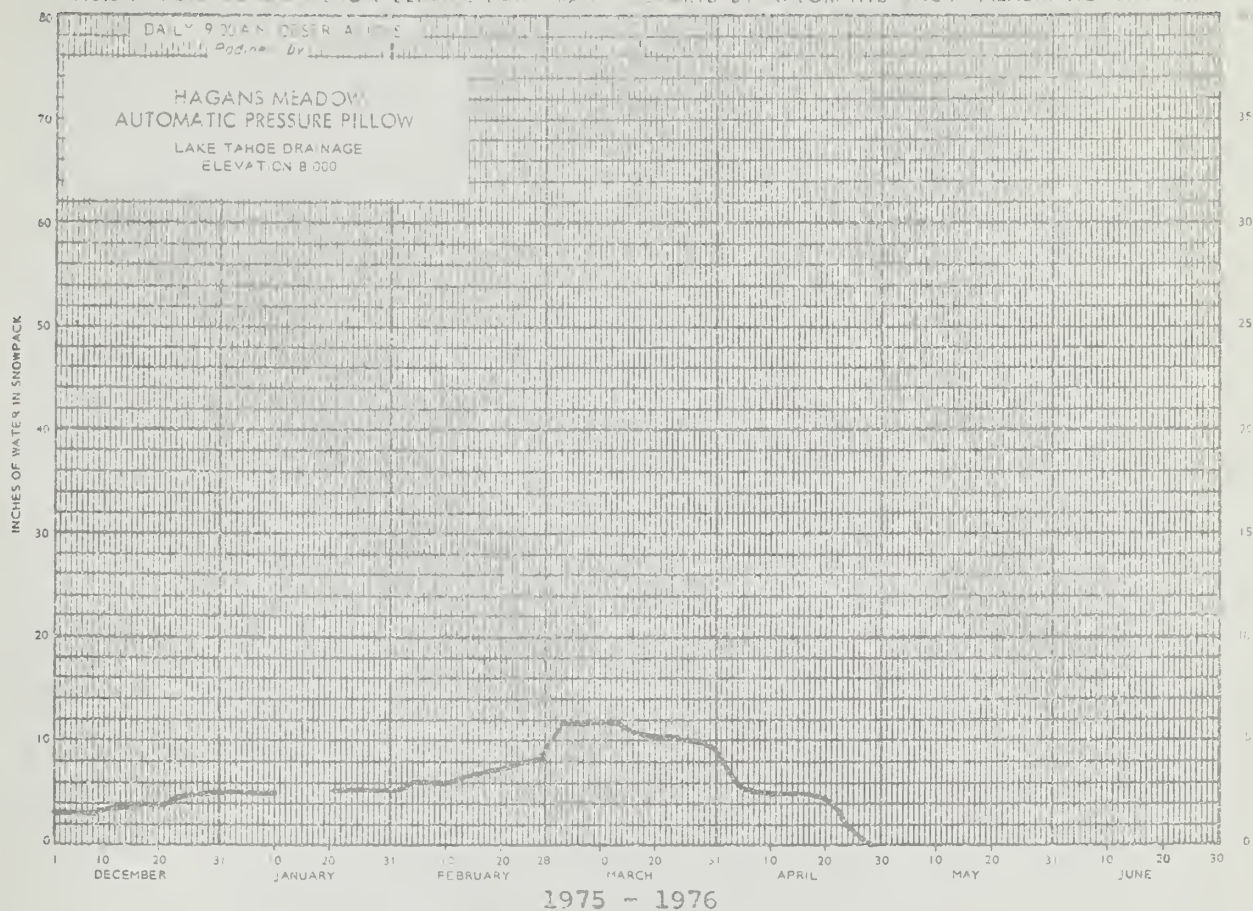 DAILY 9:00 A.M. OBSERVATIONS
HAGANS MEADOW
AUTOMATIC PRESSURE PILLOW
LAKE TAHOE DRAINAGE
ELEVATION 8 000
INCHES OF WATER IN SNOWPACK
80
70
60
50
40
30
20
10
0
35
30
25
20
15
0
1 10 20 31 10 20 31 20 28 20 31 10 20 30 10 20 31 10 20 30
DECEMBER JANUARY FEBRUARY MARCH APRIL MAY JUNE
1975 - 1976